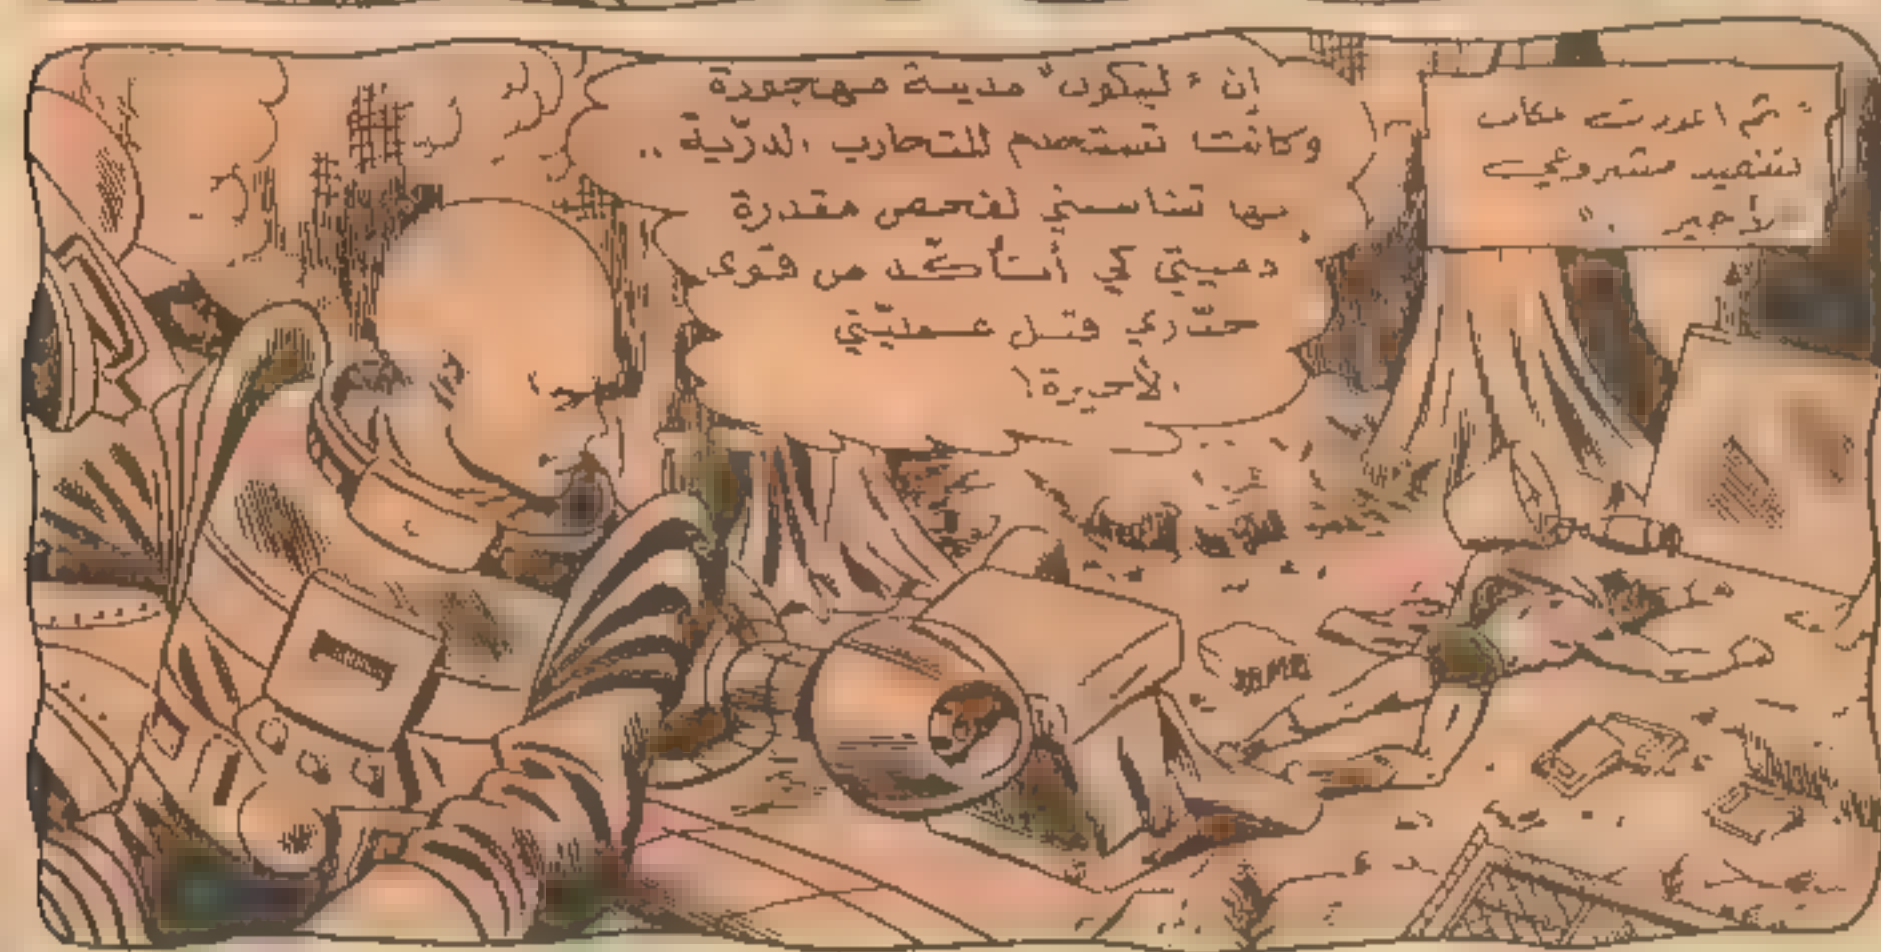 ثم اخترت مكان
لتنفيذ مشروعي
الأخير
إن "ليكون" مدينة مهجورة
وكانت تستخدم للتجارب الذرّية ..
إنها تناسبني لفحص مقدرة
دميتي كي أتأكّد من قوى
قبل عمليّتي
الأخيرة!